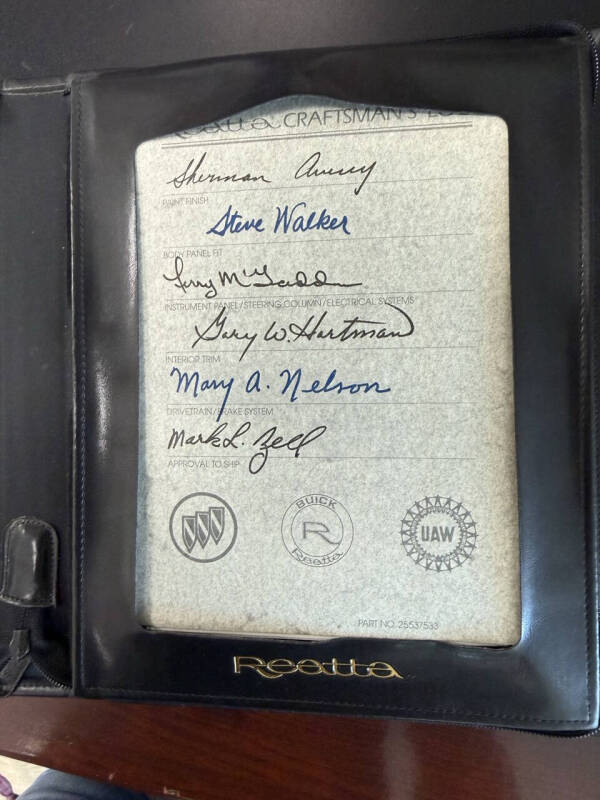 Reatta CRAFTSMAN'S LOG
Sherman Avery
PAINT FINISH
Steve Walker
BODY PANEL FIT
Jerry McFadden
INSTRUMENT PANEL/STEERING COLUMN/ELECTRICAL SYSTEMS
Gary W. Hartman
INTERIOR TRIM
Mary A. Nelson
DRIVETRAIN/BRAKE SYSTEM
Mark L. Zell
APPROVAL TO SHIP
BUICK
R
Reatta
UAW
PART NO. 25537533
Reatta